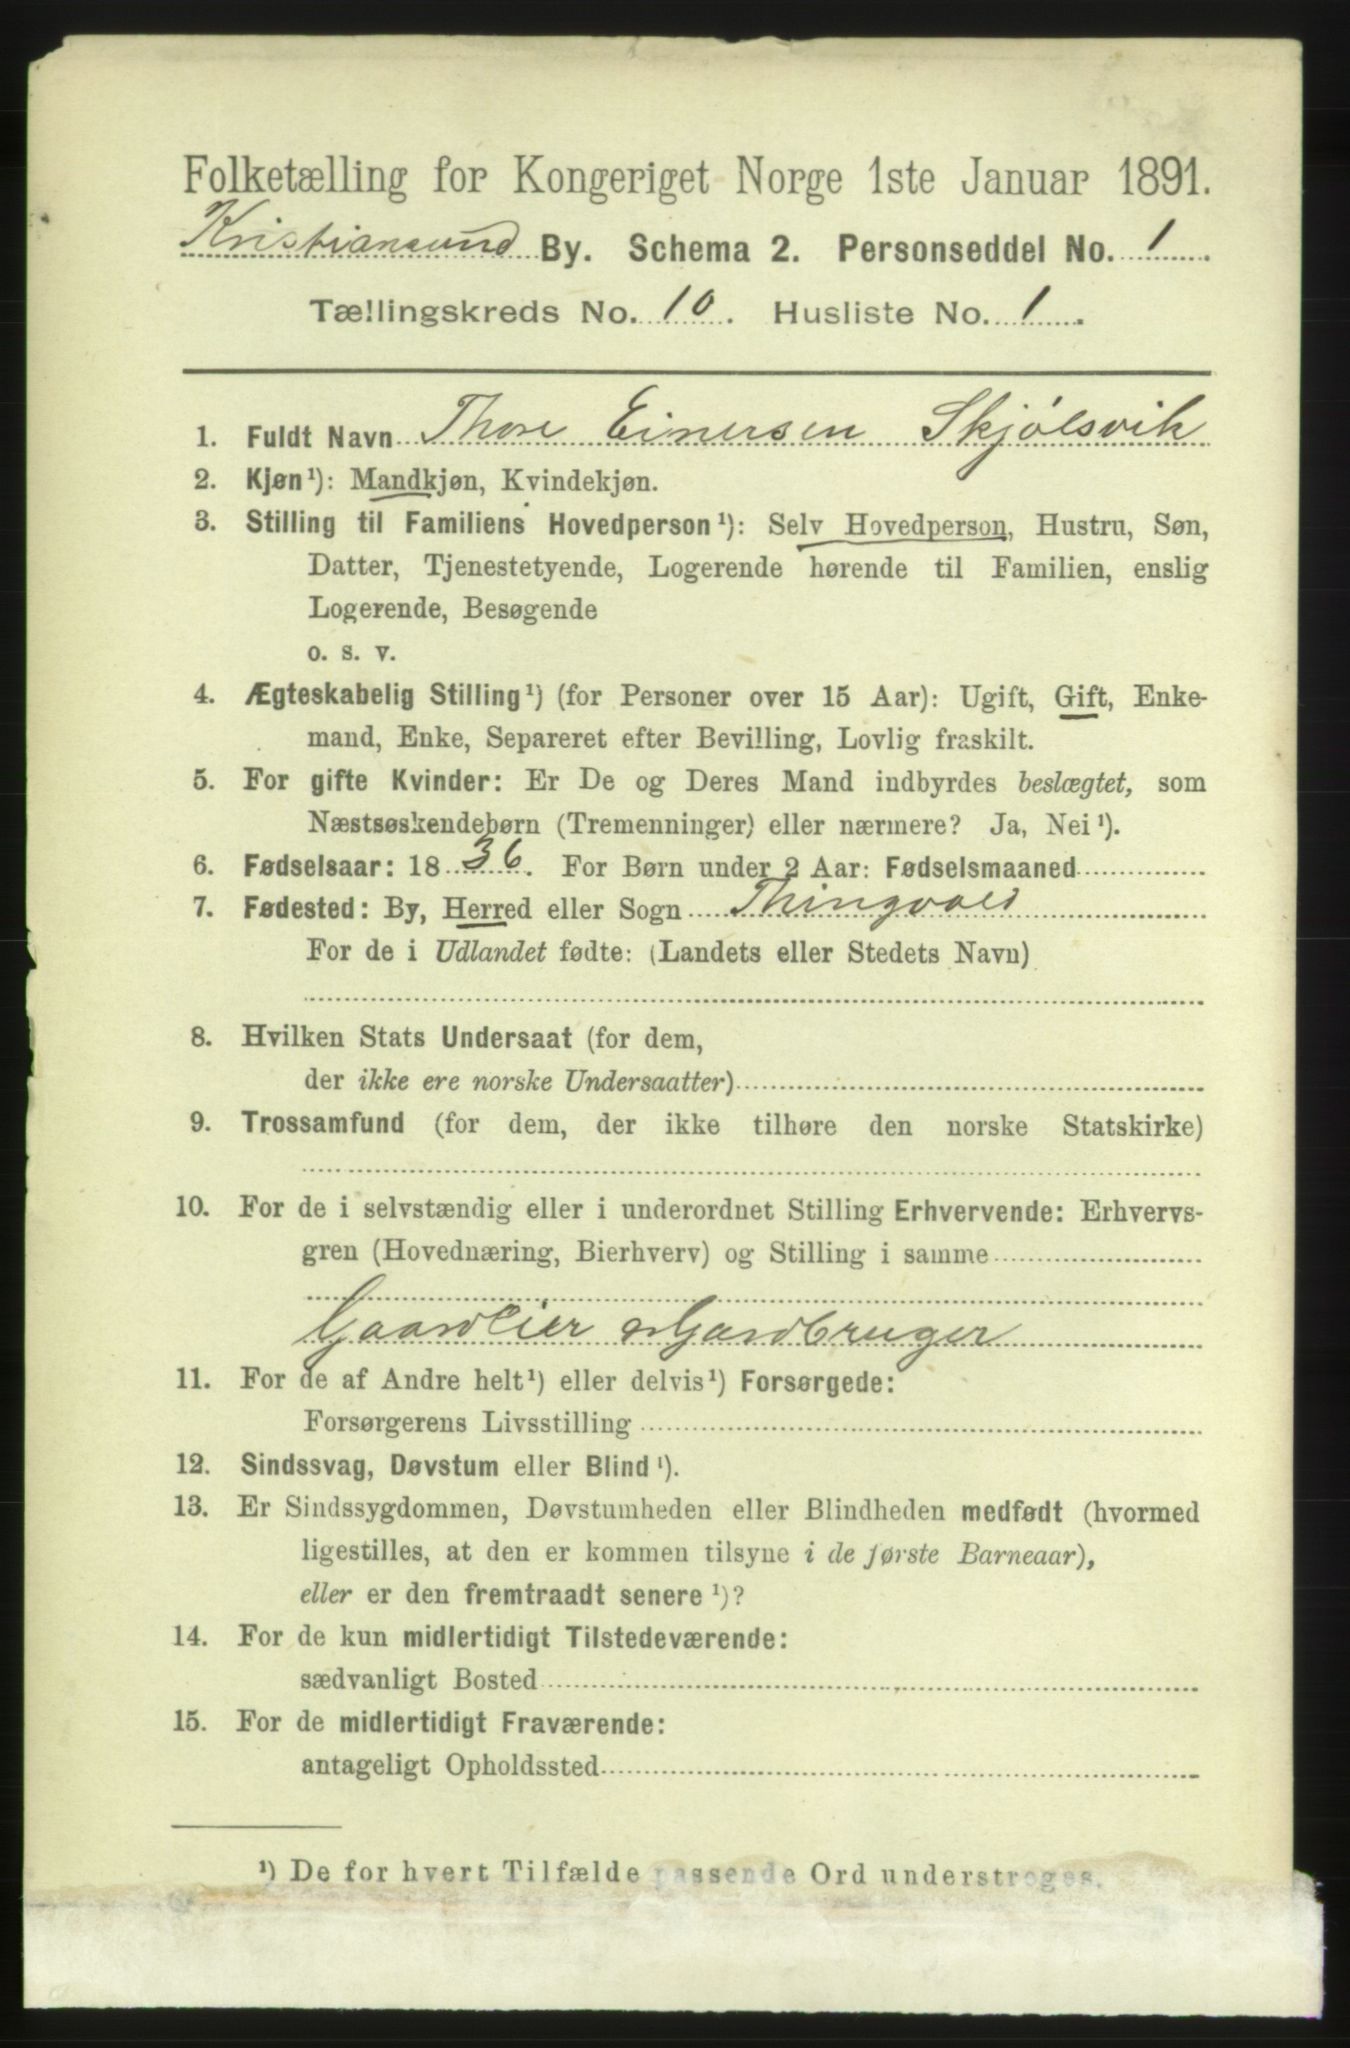 Folketælling for Kongeriget Norge 1ste Januar 1891.
Kristiansund By. Schema 2. Personseddel No. 1
Tællingskreds No. 10. Husliste No. 1.
1. Fuldt Navn Thore Einersen Skjølsvik
2. Kjøn¹): Mandkjøn, Kvindekjøn.
3. Stilling til Familiens Hovedperson¹): Selv Hovedperson, Hustru, Søn,
Datter, Tjenestetyende, Logerende hørende til Familien, enslig
Logerende, Besøgende
o. s. v.
4. Ægteskabelig Stilling¹) (for Personer over 15 Aar): Ugift, Gift, Enke-
mand, Enke, Separeret efter Bevilling, Lovlig fraskilt.
5. For gifte Kvinder: Er De og Deres Mand indbyrdes beslægtet, som
Næstsøskendebørn (Tremenninger) eller nærmere? Ja, Nei¹).
6. Fødselsaar: 1836. For Børn under 2 Aar: Fødselsmaaned
7. Fødested: By, Herred eller Sogn Thingvold
For de i Udlandet fødte: (Landets eller Stedets Navn)
8. Hvilken Stats Undersaat (for dem,
der ikke ere norske Undersaatter)
9. Trossamfund (for dem, der ikke tilhøre den norske Statskirke)
10. For de i selvstændig eller i underordnet Stilling Erhvervende: Erhvervs-
gren (Hovednæring, Bierhverv) og Stilling i samme
Gaardeier Gardbruger
11. For de af Andre helt¹) eller delvis¹) Forsørgede:
Forsørgerens Livsstilling
12. Sindssvag, Døvstum eller Blind¹).
13. Er Sindssygdommen, Døvstumheden eller Blindheden medfødt (hvormed
ligestilles, at den er kommen tilsyne i de første Barneaar),
eller er den fremtraadt senere¹)?
14. For de kun midlertidigt Tilstedeværende:
sædvanligt Bosted
15. For de midlertidigt Fraværende:
antageligt Opholdssted
¹) De for hvert Tilfælde passende Ord understreges.